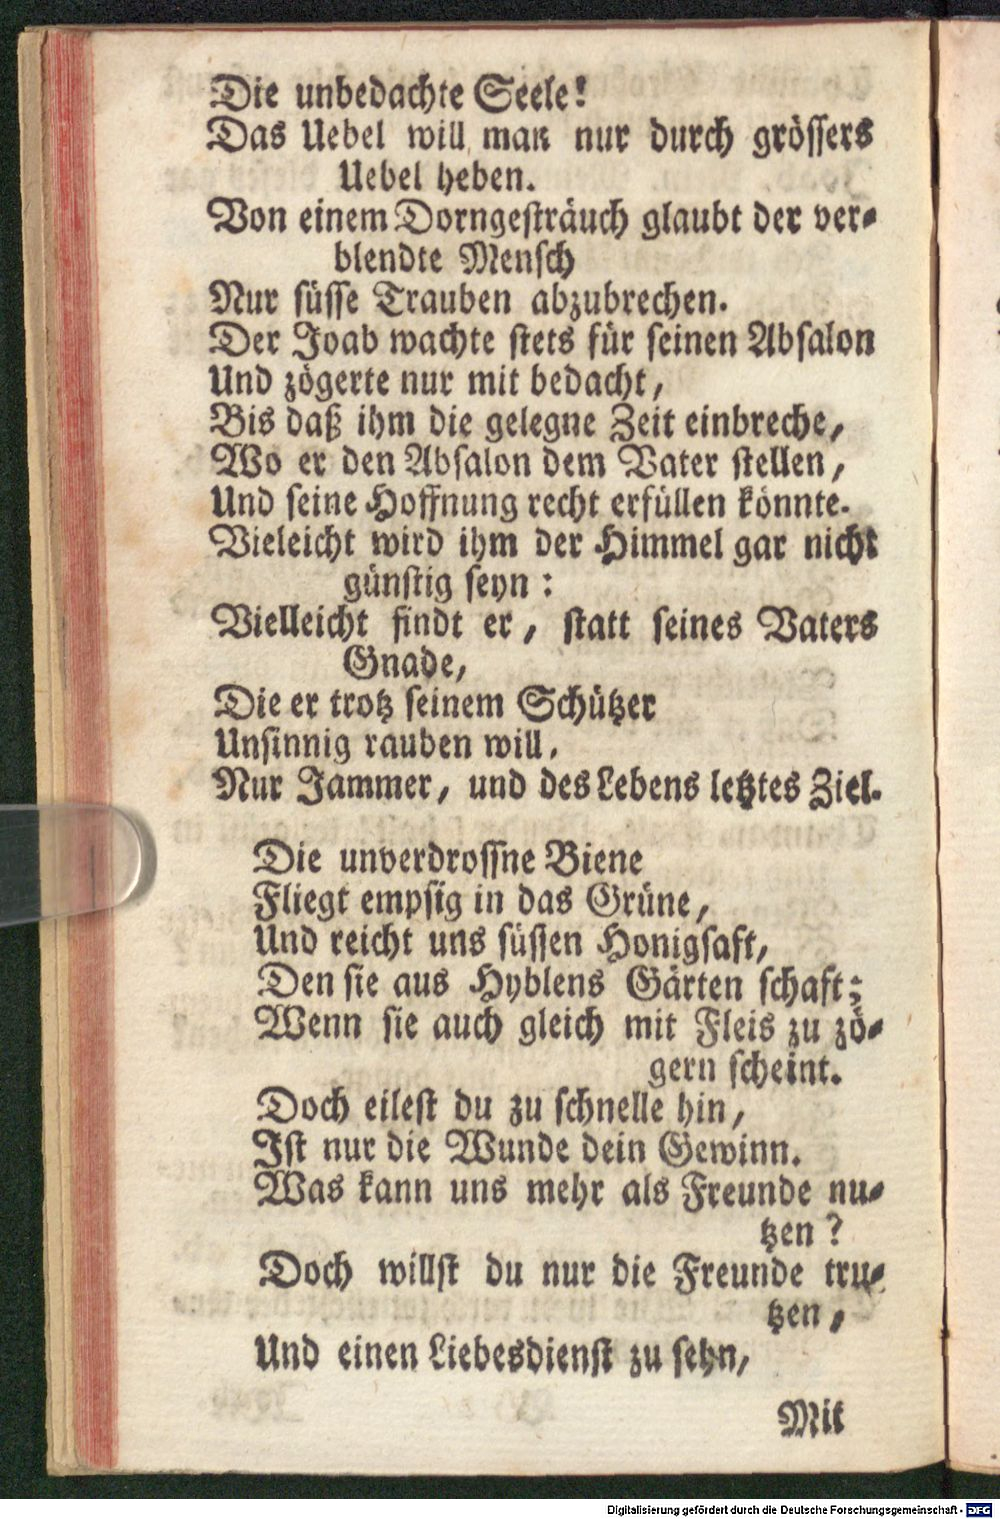 Die unbedachte Seele!
Das Uebel will man nur durch grössers
Uebel heben.
Von einem Dorngesträuch glaubt der ver-
blendte Mensch
Nur süsse Trauben abzubrechen.
Der Joab wachte stets für seinen Absalon
Und zögerte nur mit bedacht,
Bis daß ihm die gelegne Zeit einbreche,
Wo er den Absalon dem Vater stellen,
Und seine Hoffnung recht erfüllen könnte.
Vieleicht wird ihm der Himmel gar nicht
günstig seyn:
Vielleicht findt er, statt seines Vaters
Gnade,
Die er trotz seinem Schützer
Unsinnig rauben will,
Nur Jammer, und des Lebens letztes Ziel.
Die unverdrossne Biene
Fliegt empsig in das Grüne,
Und reicht uns süssen Honigsaft,
Den sie aus Hyblens Gärten schaft;
Wenn sie auch gleich mit Fleis zu zö-
gern scheint.
Doch eilest du zu schnelle hin,
Ist nur die Wunde dein Gewinn.
Was kann uns mehr als Freunde nu-
tzen?
Doch willst du nur die Freunde tru-
tzen,
Und einen Liebesdienst zu sehn,
Mit
Digitalisierung gefördert durch die Deutsche Forschungsgemeinschaft - DFG